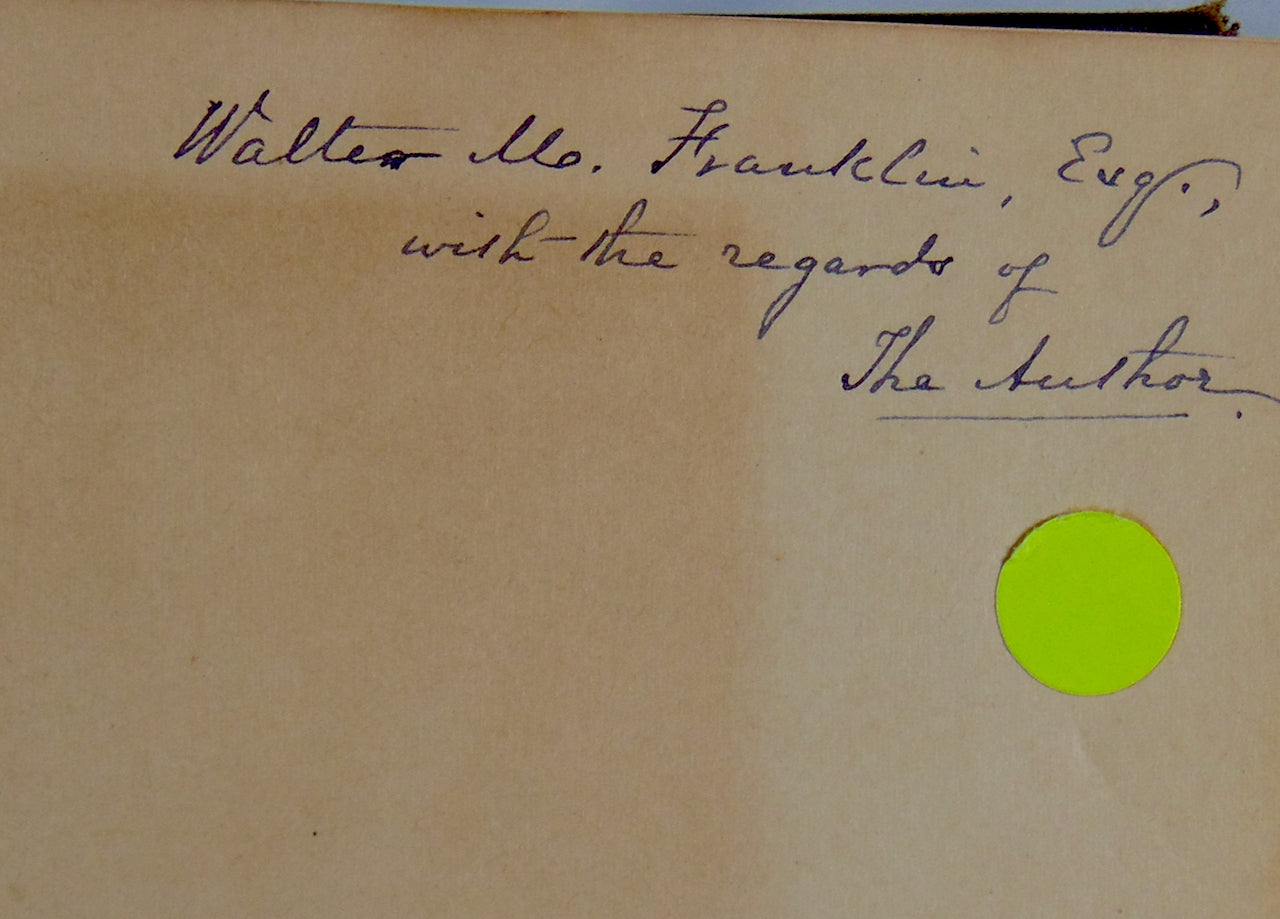 Walter M. Franklin, Esq.,
with the regards of
The Author.